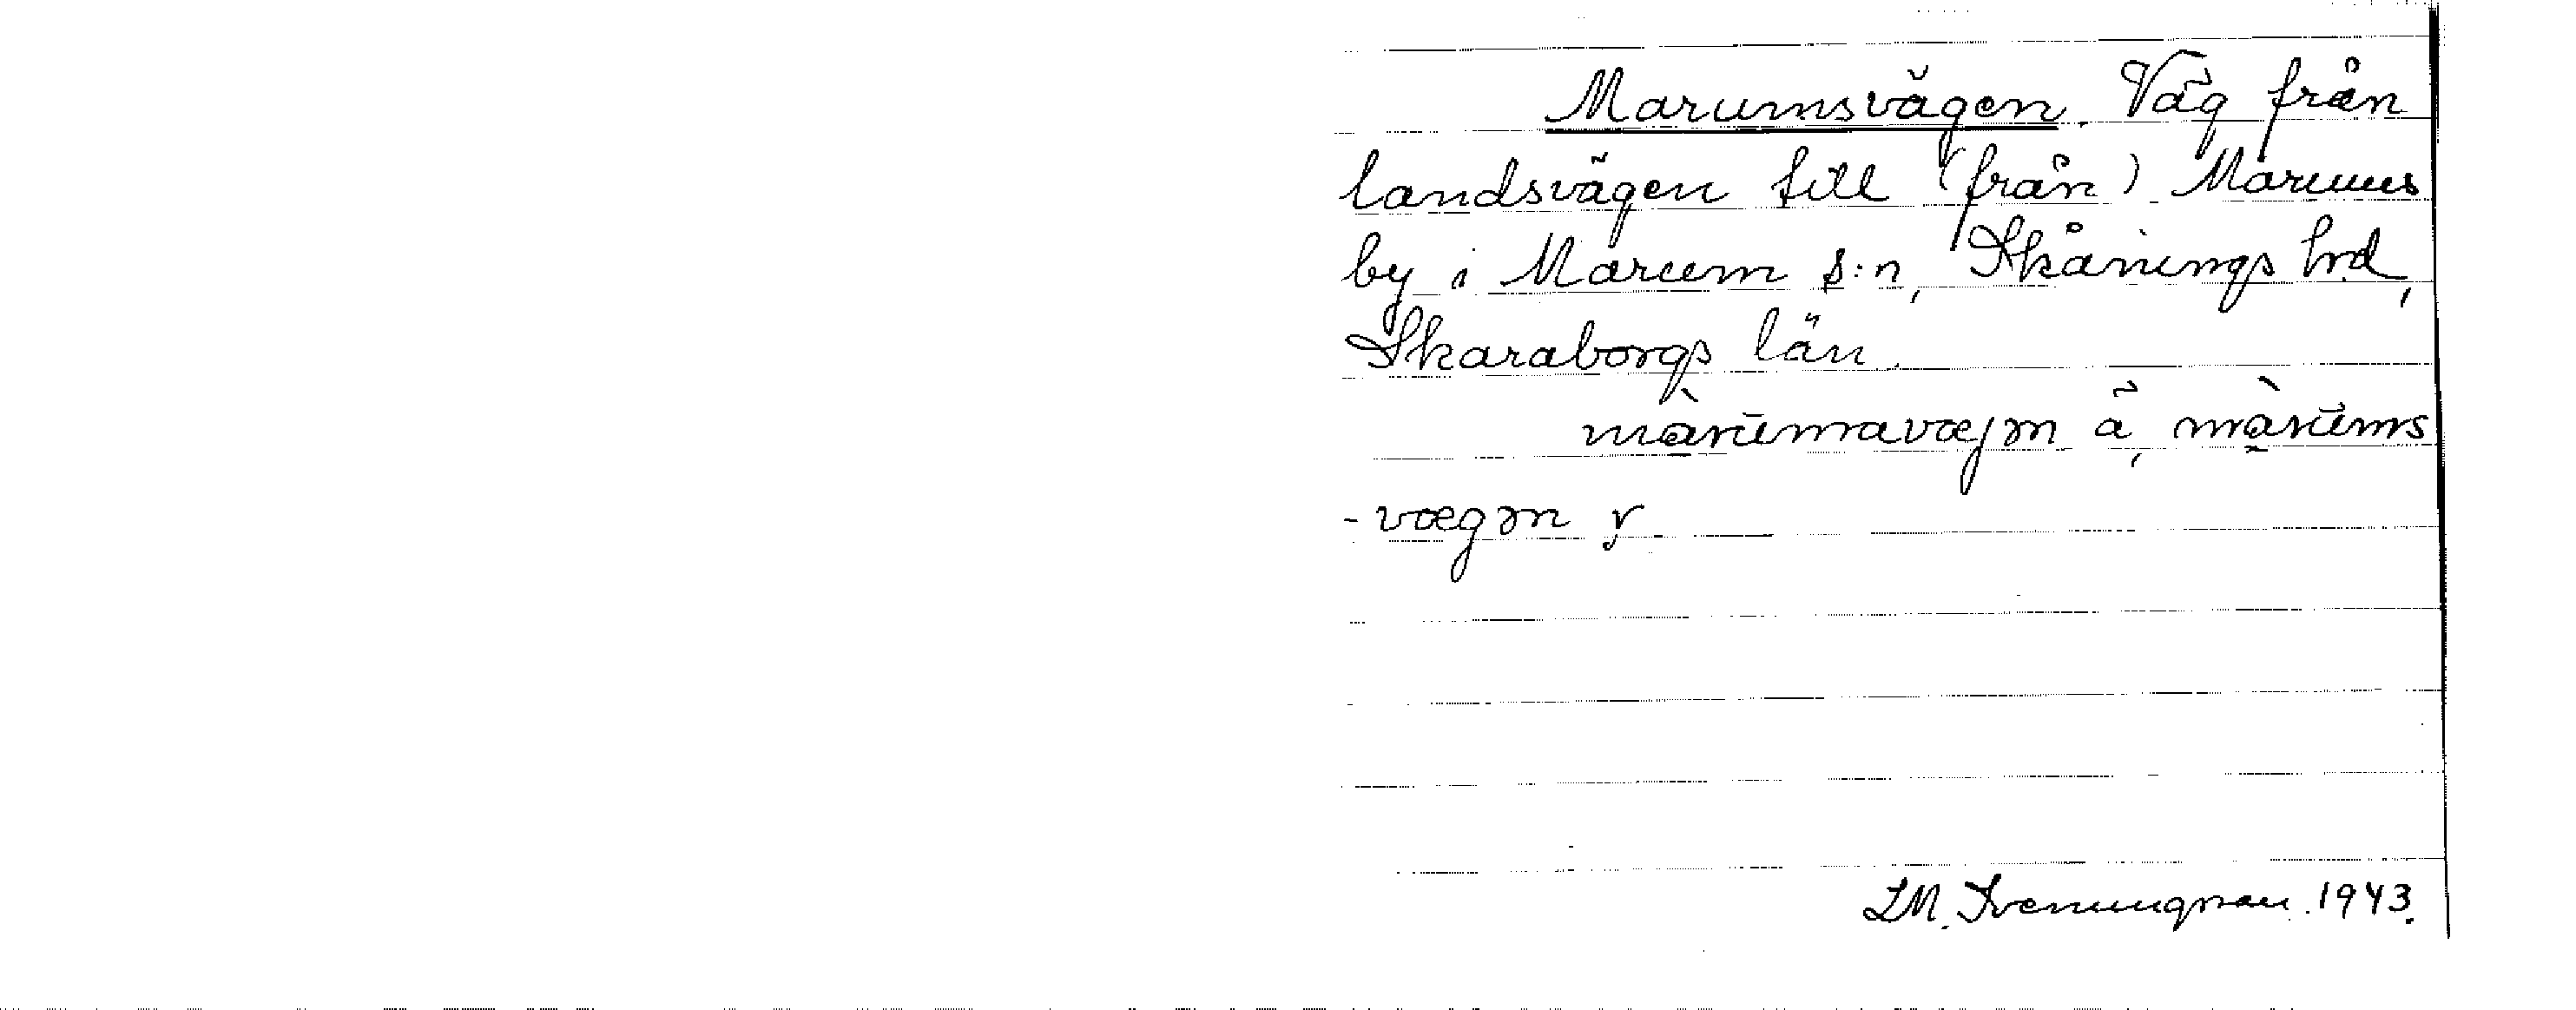 Marumsvägen. Väg från
landsvägen till (från) Marums
by i Marum s:n, Skånings hrd,
Skaraborgs län.
-vægən
LM. Svenungsson. 1943.